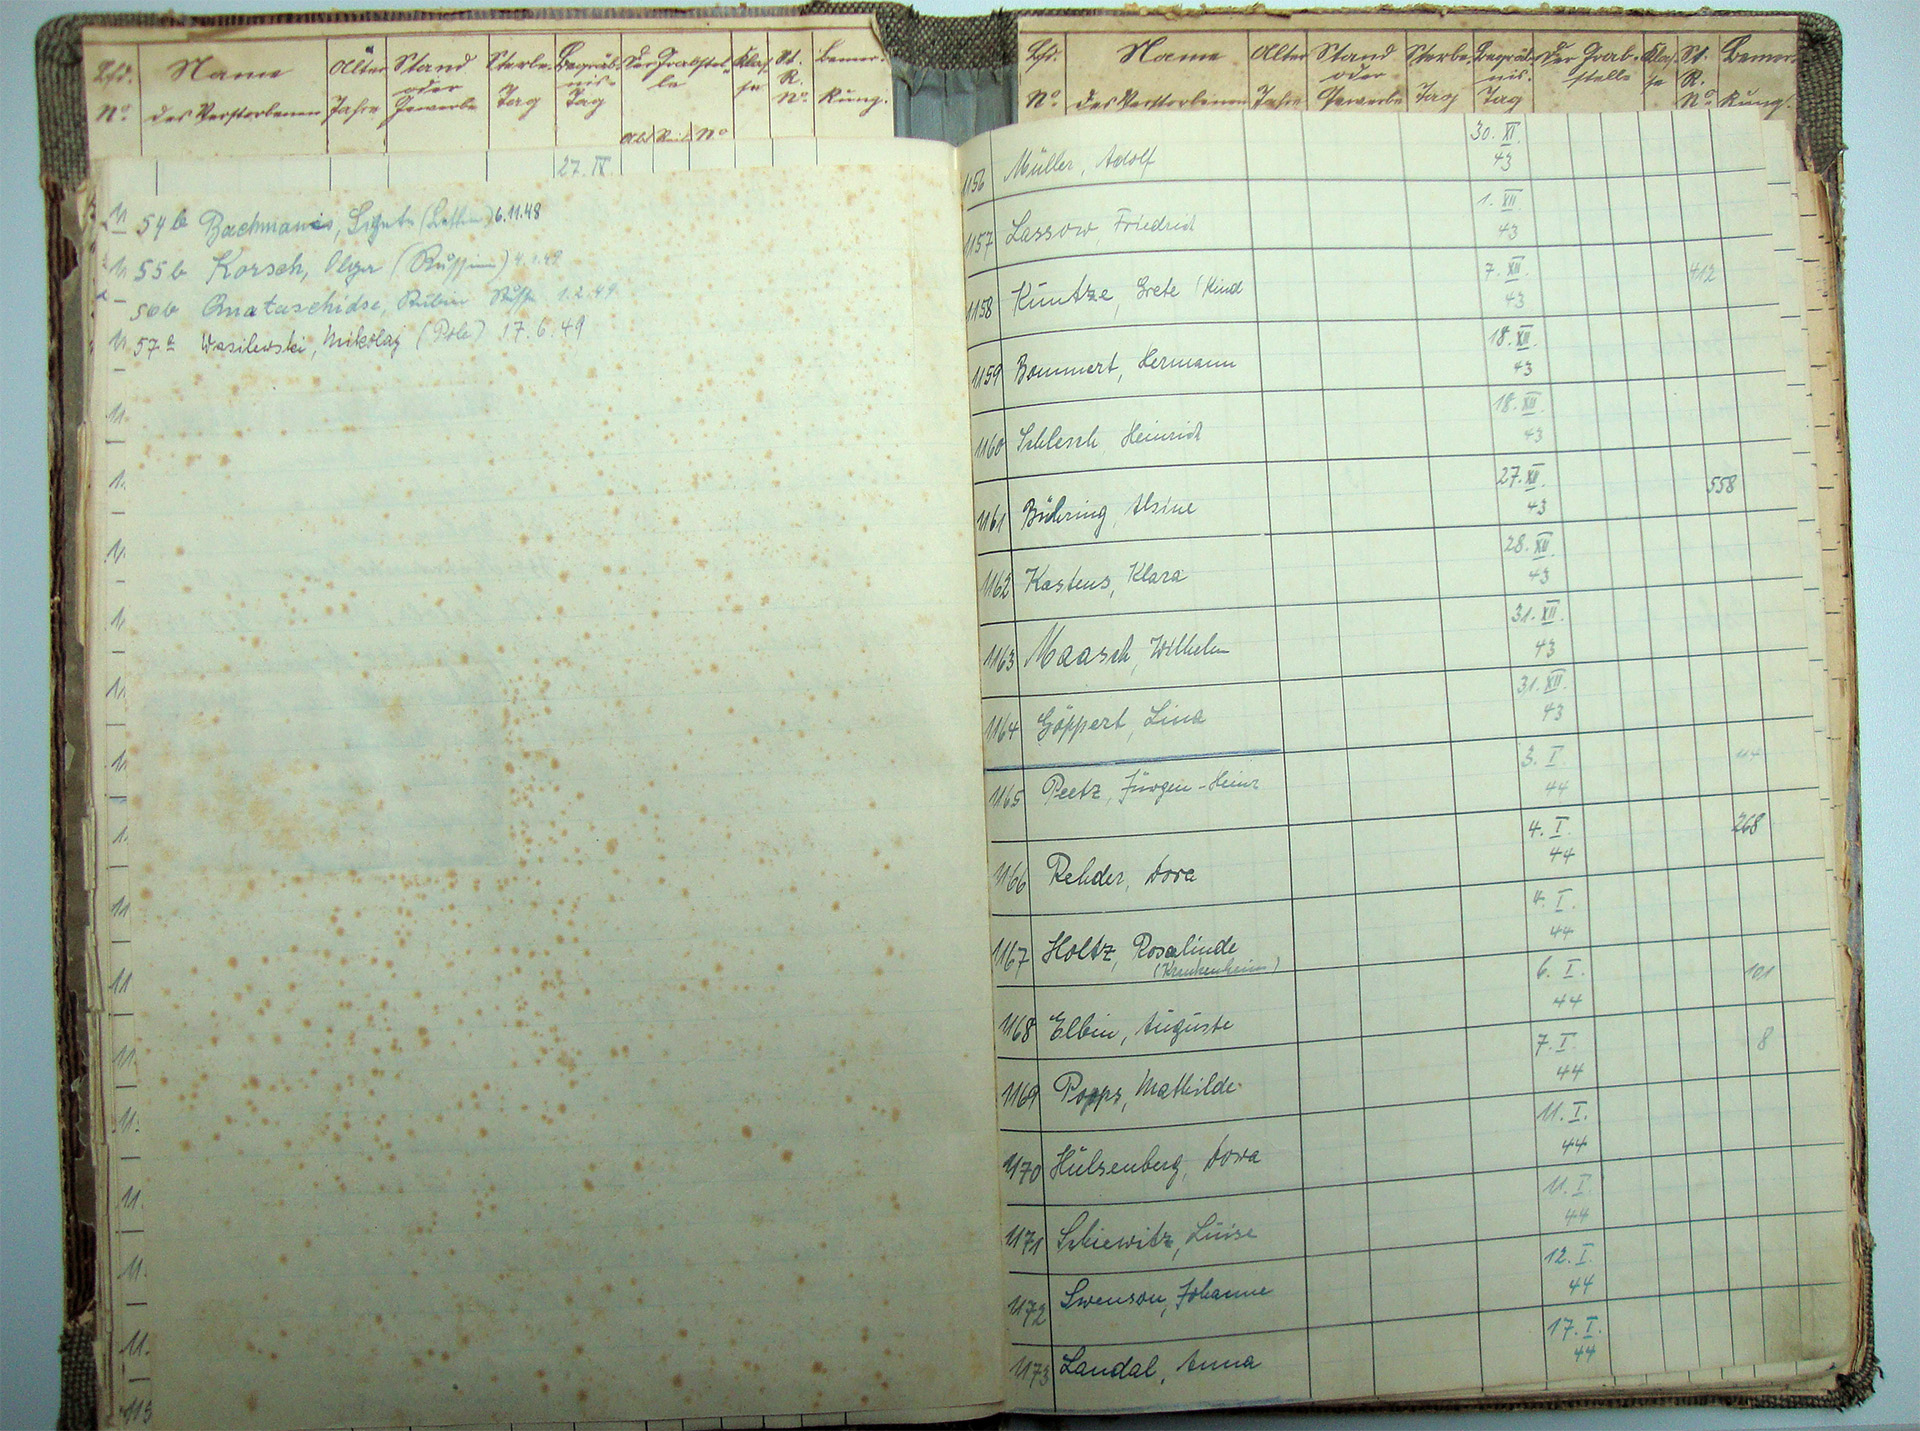 Lfd. Name Alter Stand Sterbe- Begräb- Der Grabstel- Klas- St. Bemer-
oder nis- le se R.
No. des Verstorbenen Jahre Gewerbe Tag Tag No. kung.
Abt. Reihe No
27. IV.
54b Bachmanis, (Lettin) 6.11.48
55b Korsch, Olga (Russin)
56b Anataschidse, Rubin 1.2.49
57a Wasilewski, Mikolaj (Pole) 17.6.49
Lfd. Name Alter Stand Sterbe- Begräb- Der Grab- Klas- St. Bemer-
oder nis- stelle se R.
No. des Verstorbenen Jahre Gewerbe Tag Tag No. kung.
1156 Müller, Adolf 30. XI. 43
1157 Lassow, Friedrich 1. XII. 43
1158 Kuntze, Grete (Kind 7. XII. 43 412
1159 Bommert, Hermann 18. XII. 43
1160 Schlesch, Heinrich 18. XII. 43
1161 Bühring, Alsine 27. XII. 43 558
1162 Kastens, Klara 28. XII. 43
1163 Maasch, Wilhelm 31. XII. 43
1164 Göppert, Lina 31. XII. 43
1165 Peetz, Jürgen-Heinz 3. I. 44 114
1166 Rehder, Dora 4. I. 44 268
1167 Holtz, Rosalinde 4. I. 44
(Krankenheim)
1168 Elbin, Auguste 6. I. 44 101
1169 Popps, Mathilde 7. I. 44 8
1170 Hülsenberg, Dora 11. I. 44
1171 Schiewitz, Luise 11. I. 44
1172 Swenson, Johanne 12. I. 44
1173 Landal, Anna 17. I. 44